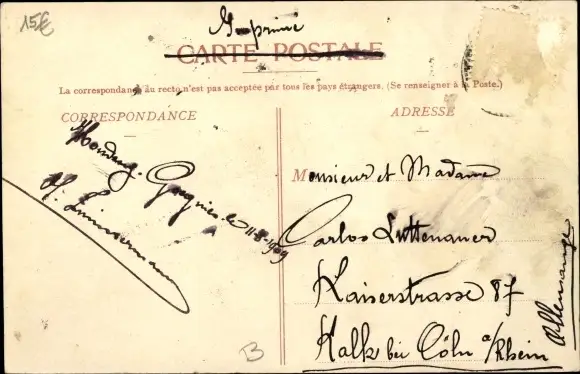 15€
Imprimé
CARTE POSTALE
La correspondance au recto n'est pas acceptée par tous les pays étrangers. (Se renseigner à la Poste.)
CORRESPONDANCE
ADRESSE
le 11-8-1909
Zimmermann
Monsieur et Madame
Carlos Luttenauer
Kaiserstrasse 87
Kalk bei Cöln a/Rhein
Allemagne
B